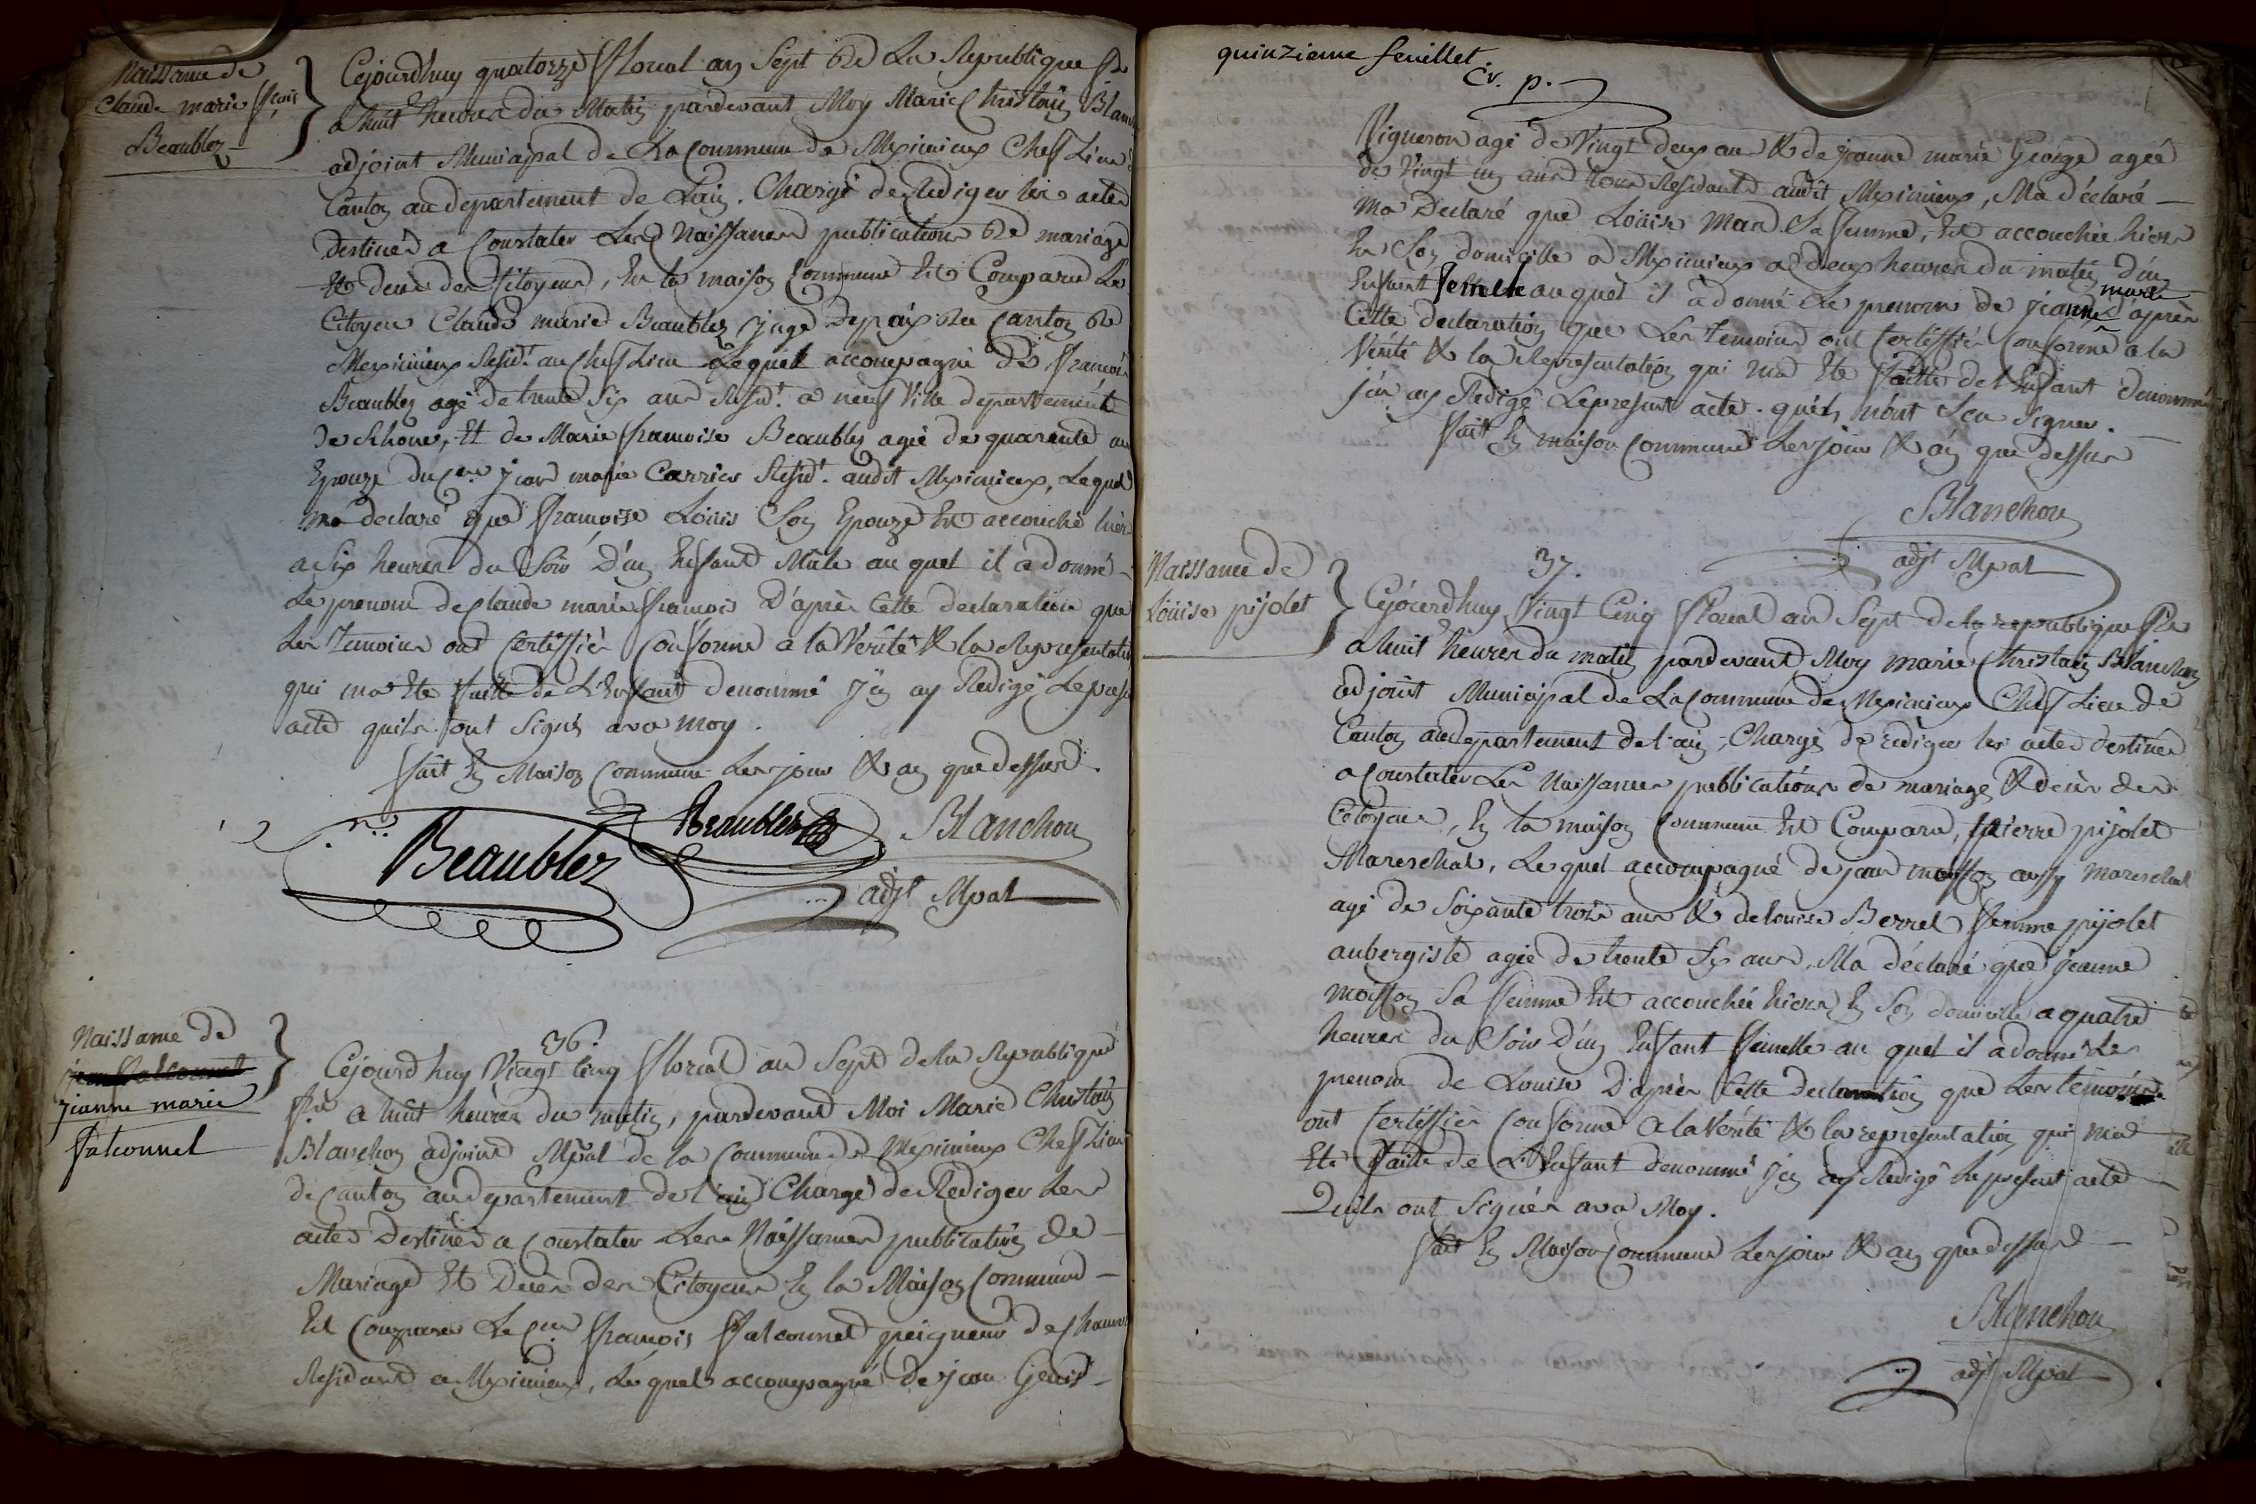 Naissance de
Claude marie
Beaublez
Cejourdhuy quatorze floreal an Sept de La Republique
a huit heures du Matin pardevant Moy Marie Christain
adjoint Municipal de La Commune de Meximieux Chef Lieu
Canton au departement de Lain. Chargé de Rediger les actes
destinés a Constater Les Naissances publications de mariage
Et deces des Citoyens, En la maison Commune Est Comparu Le
Citoyen Claude marie Beaublez juge de paix du Canton de
Meximieux Resid.t au Chef Lieu Lequel accompagné de francois
Beaublez agé de trente Six ans Resid.t a neuf Ville departement
de Rhone, Et de Marie francoise Beaublez agée de quarente
Epouze du C.en jean marie Carrier Resid.t audit Meximieux, Lequel
ma declaré que francoise Loüis Son Epouze Est accouché hier
a Six heures du Soir D'un Enfant Mâle au quel il a donné
Le prenom de Claude marie francois D'après Cette declaration que
Les Temoins ont Certiffiés Conforme a la Vérité & la Representation
qui ma Eté faitte de L'Enfant denommé J'en ay Redigé Le
acte quils ont Signés avec moy.
fait En Maison Commune Les jour & an que dessus
Beaublez
Beaublez
Blanchon
adjt Mpal
Naissance de
jeanne marie
falconnet
36.
Cejourd huy Vingt Cinq floréal an Sept de la Republique
f.se a huit heures du matin, pardevant Moi Marie Christain
Blanchon adjoint Mpal de la Commune de Meximieux Chef Lieu
de Canton au departement de l'ain Chargé de Rediger Les
actes Destinés a Constater Les Naissances publication de
Mariage Et Deces des Citoyens En la Maison Commune
Est Comparu Le C.en francois falconnet peigneur de Chanvre
Residant a Meximieux, Le quel accompagné de jean Genis
quinzieme feuillet
Vigneron agé de Vingt deux ans & de jeanne marie George agée
de Vingt un ans tous Residants audit Meximieux, Ma déclaré
ma Declaré que Loüise Mars Sa femme, Est accouchée hier
En Son domicille a Meximieux a deux heures du matin D'un
Enfant femelle auquel il à donné Le prenom de jeanne marie D'après
Cette declaration que Les Temoins ont Certiffiés Conforme a la
Vérité & la Representation qui ma Eté faitte de l'Enfant denommé
j'en ay Redigé Le present acte. qu'ils n'ont Seu Signer.
fait En maison Commune Les jour & an que dessus
Blanchon
adjt Mpal
Naissance de
Loüise pijolet
37.
Cejourdhuy Vingt Cinq floreal an Sept de la republique
a huit heures du matin pardevant Moy marie Christain Blanchon
adjoint Municipal de La Commune de Meximieux Chef Lieu de
Canton au departement de l'ain, Chargé de rediger les actes destinés
a Constater Les Naissances publications de mariages & deces des
Citoyens, En la maison Commune Est Comparu, pierre pijolet
Mareschal, Le quel accompagné de jean moisson aussy mareschal
agé de Soixante trois ans & de louise Berret femme pijolet
aubergiste agée de trente Six ans, Ma déclaré que jeanne
moisson Sa femme Est accouchée hier En Son domicille a quatre
heures du Soir D'un Enfant femelle au quel il a donné Le
prenom de Louise D'après Cette declaration que Les temoins
ont Certiffiés Conforme a la Vérité & la representation qui ma
Eté faitte de L'Enfant denommé J'en ay Redigé Le present acte
Quils ont Signés avec Moy.
fait En Maison Commune Les jour & an que dessus
Blanchon
adjt Mpal